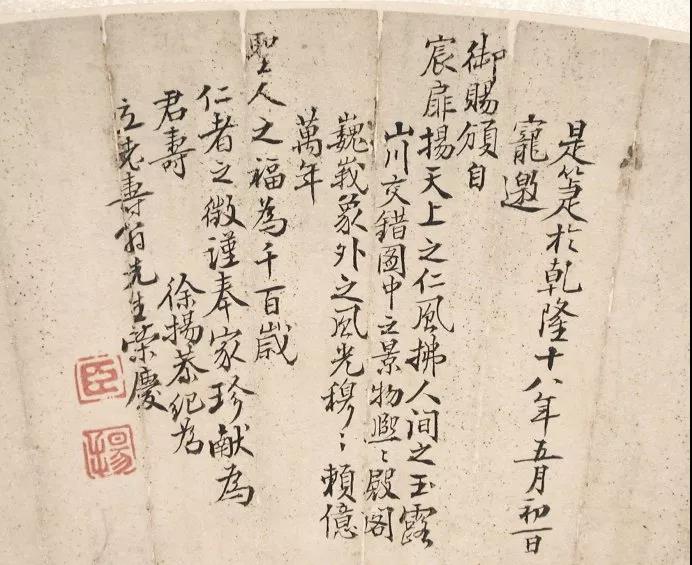 是箑於乾隆十八年五月初一日
寵邀
御賜頒自
宸扉揚天上之仁風拂人間之玉露
山川交錯圖中之景物熙〻殿閣
巍峩象外之風光穆〻賴億
萬年
聖人之福為千百歲
仁者之徵謹奉家珍獻為
君壽
徐揚恭紀為
立老壽翁先生榮慶
臣
揚